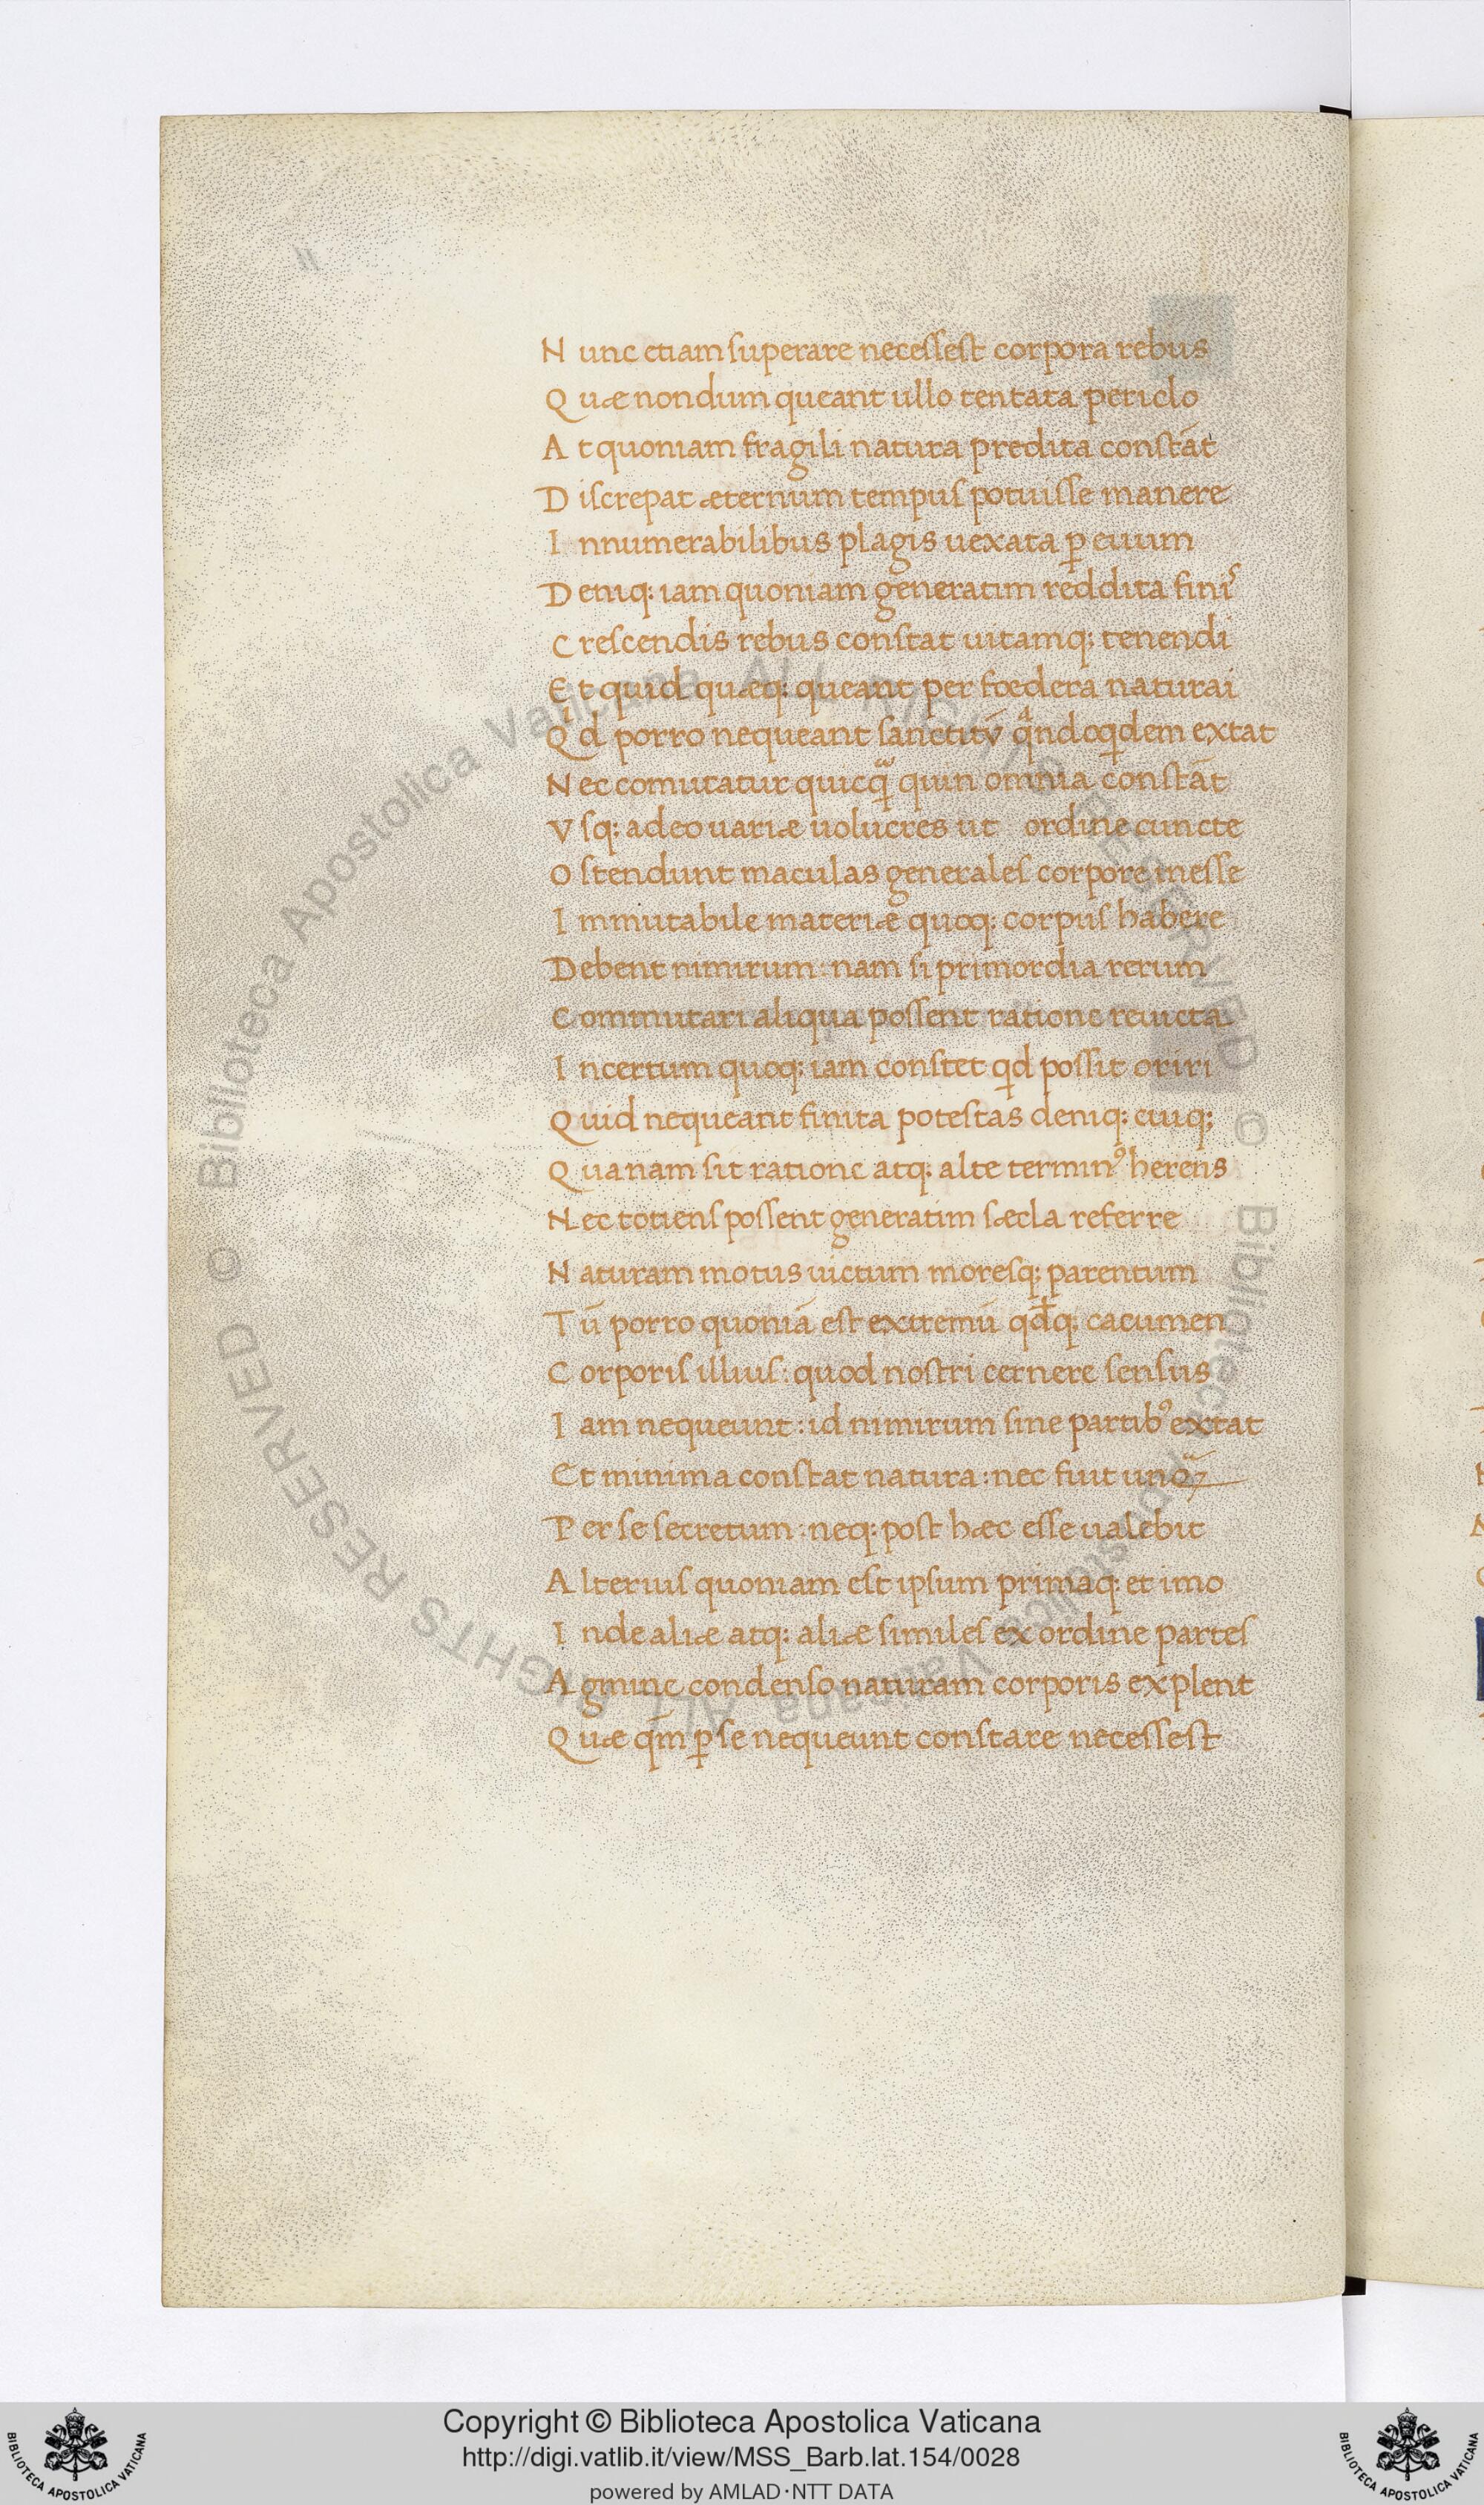 N unc etiam superare necessest corpora rebus
Q uæ nondum queant ullo tentata periclo
A t quoniam fragili natura predita constāt
D iscrepat æternum tempus potuisse manere
I nnumerabilibus plagis uexata ꝑ euum
D eniq: iam quoniam generatim reddita finiˢ
C rescendis rebus constat uitamq; tenendi
E t quid quæq: queant per fœdera naturai
Qⁱd porro nequeant sanctitū qᵃndoqdem extat
N ec comutatur quicqᵃ̄ quin omnia constāt
V sq: adeo uariæ uolucres ut ordine cuncte
O stendunt maculas generales corpore inesse
I mmutabile materiæ quoq: corpus habere
D ebent nimirum: nam si primordia rerum
C ommutari aliqua possent ratione reuicta
I ncertum quoq: iam constet qd possit oriri
Q uid nequeant finita potestas deniq: cuiq;
Q uanam sit ratione atq: alte terminꝰ herens
N ec totiens possent generatim sæcla referre
N aturam motus uictum moresq; parentum
T ū porro quoniā est extremū qđq: cacumen
C orporis illius: quod nostri cernere sensus
I am nequeunt: id nimirum sine partibꝰ extat
E t minima constat natura: nec fuit unqᵃ̄
P er se secretum: neq: post hæc esse ualebit
A lterius quoniam est ipsum primaq: et imo
I nde aliæ atq: aliæ similes ex ordine partes
A gmine condenso naturam corporis explent
Q uæ qm̄ ꝑ se nequeunt constare necessest
© Biblioteca Apostolica Vaticana ALL RIGHTS RESERVED © Biblioteca Apostolica Vaticana ALL RIGHTS RESERVED
Copyright © Biblioteca Apostolica Vaticana
http://digi.vatlib.it/view/MSS_Barb.lat.154/0028
powered by AMLAD·NTT DATA
BIBLIOTECA APOSTOLICA VATICANA
BIBLIOTECA APOSTOLICA VATICANA